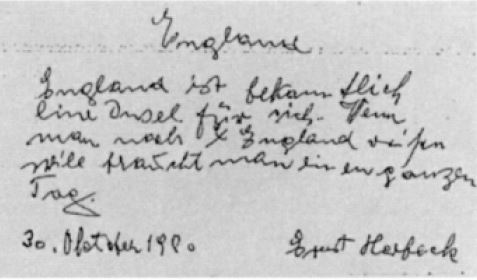 England.
England ist bekanntlich
eine Insel für sich. Wenn
man nach England reisen
will braucht man einen ganzen
Tag.
30. Oktober 1980 Ernst Herbeck